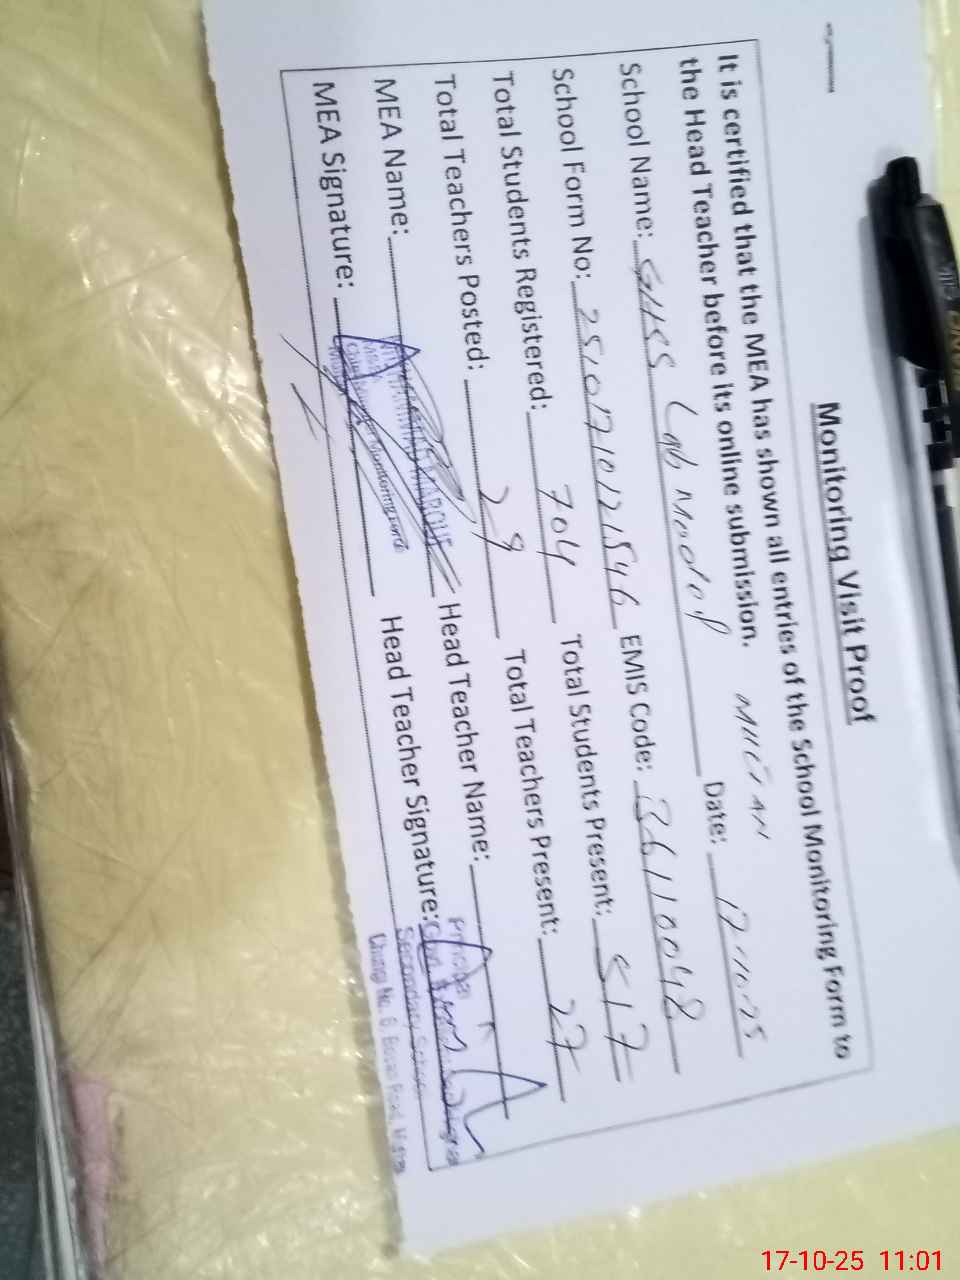 Monitoring Visit Proof
It is certified that the MEA has shown all entries of the School Monitoring Form to
the Head Teacher before its online submission.
MULTAN
School Name: GHSS Lab Model Date: 17-10-25
School Form No: 25101710121546 EMIS Code: 36110048
Total Students Registered: 704 Total Students Present: 517
Total Teachers Posted: 29 Total Teachers Present: 27
MEA Name: Head Teacher Name:
MEA Signature: Head Teacher Signature:
Monitoring
Principal
Secondary School
Chung No. 6 Bosan Road, Multan
17-10-25 11:01